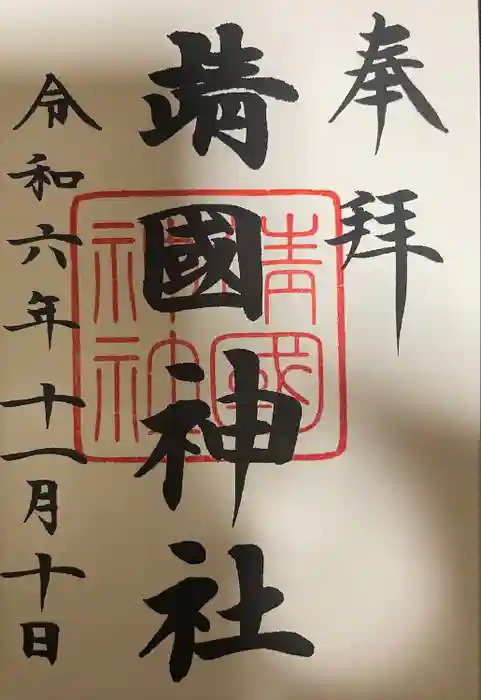 奉拜
靖國神社
靖國
神社
令和六年十一月十日